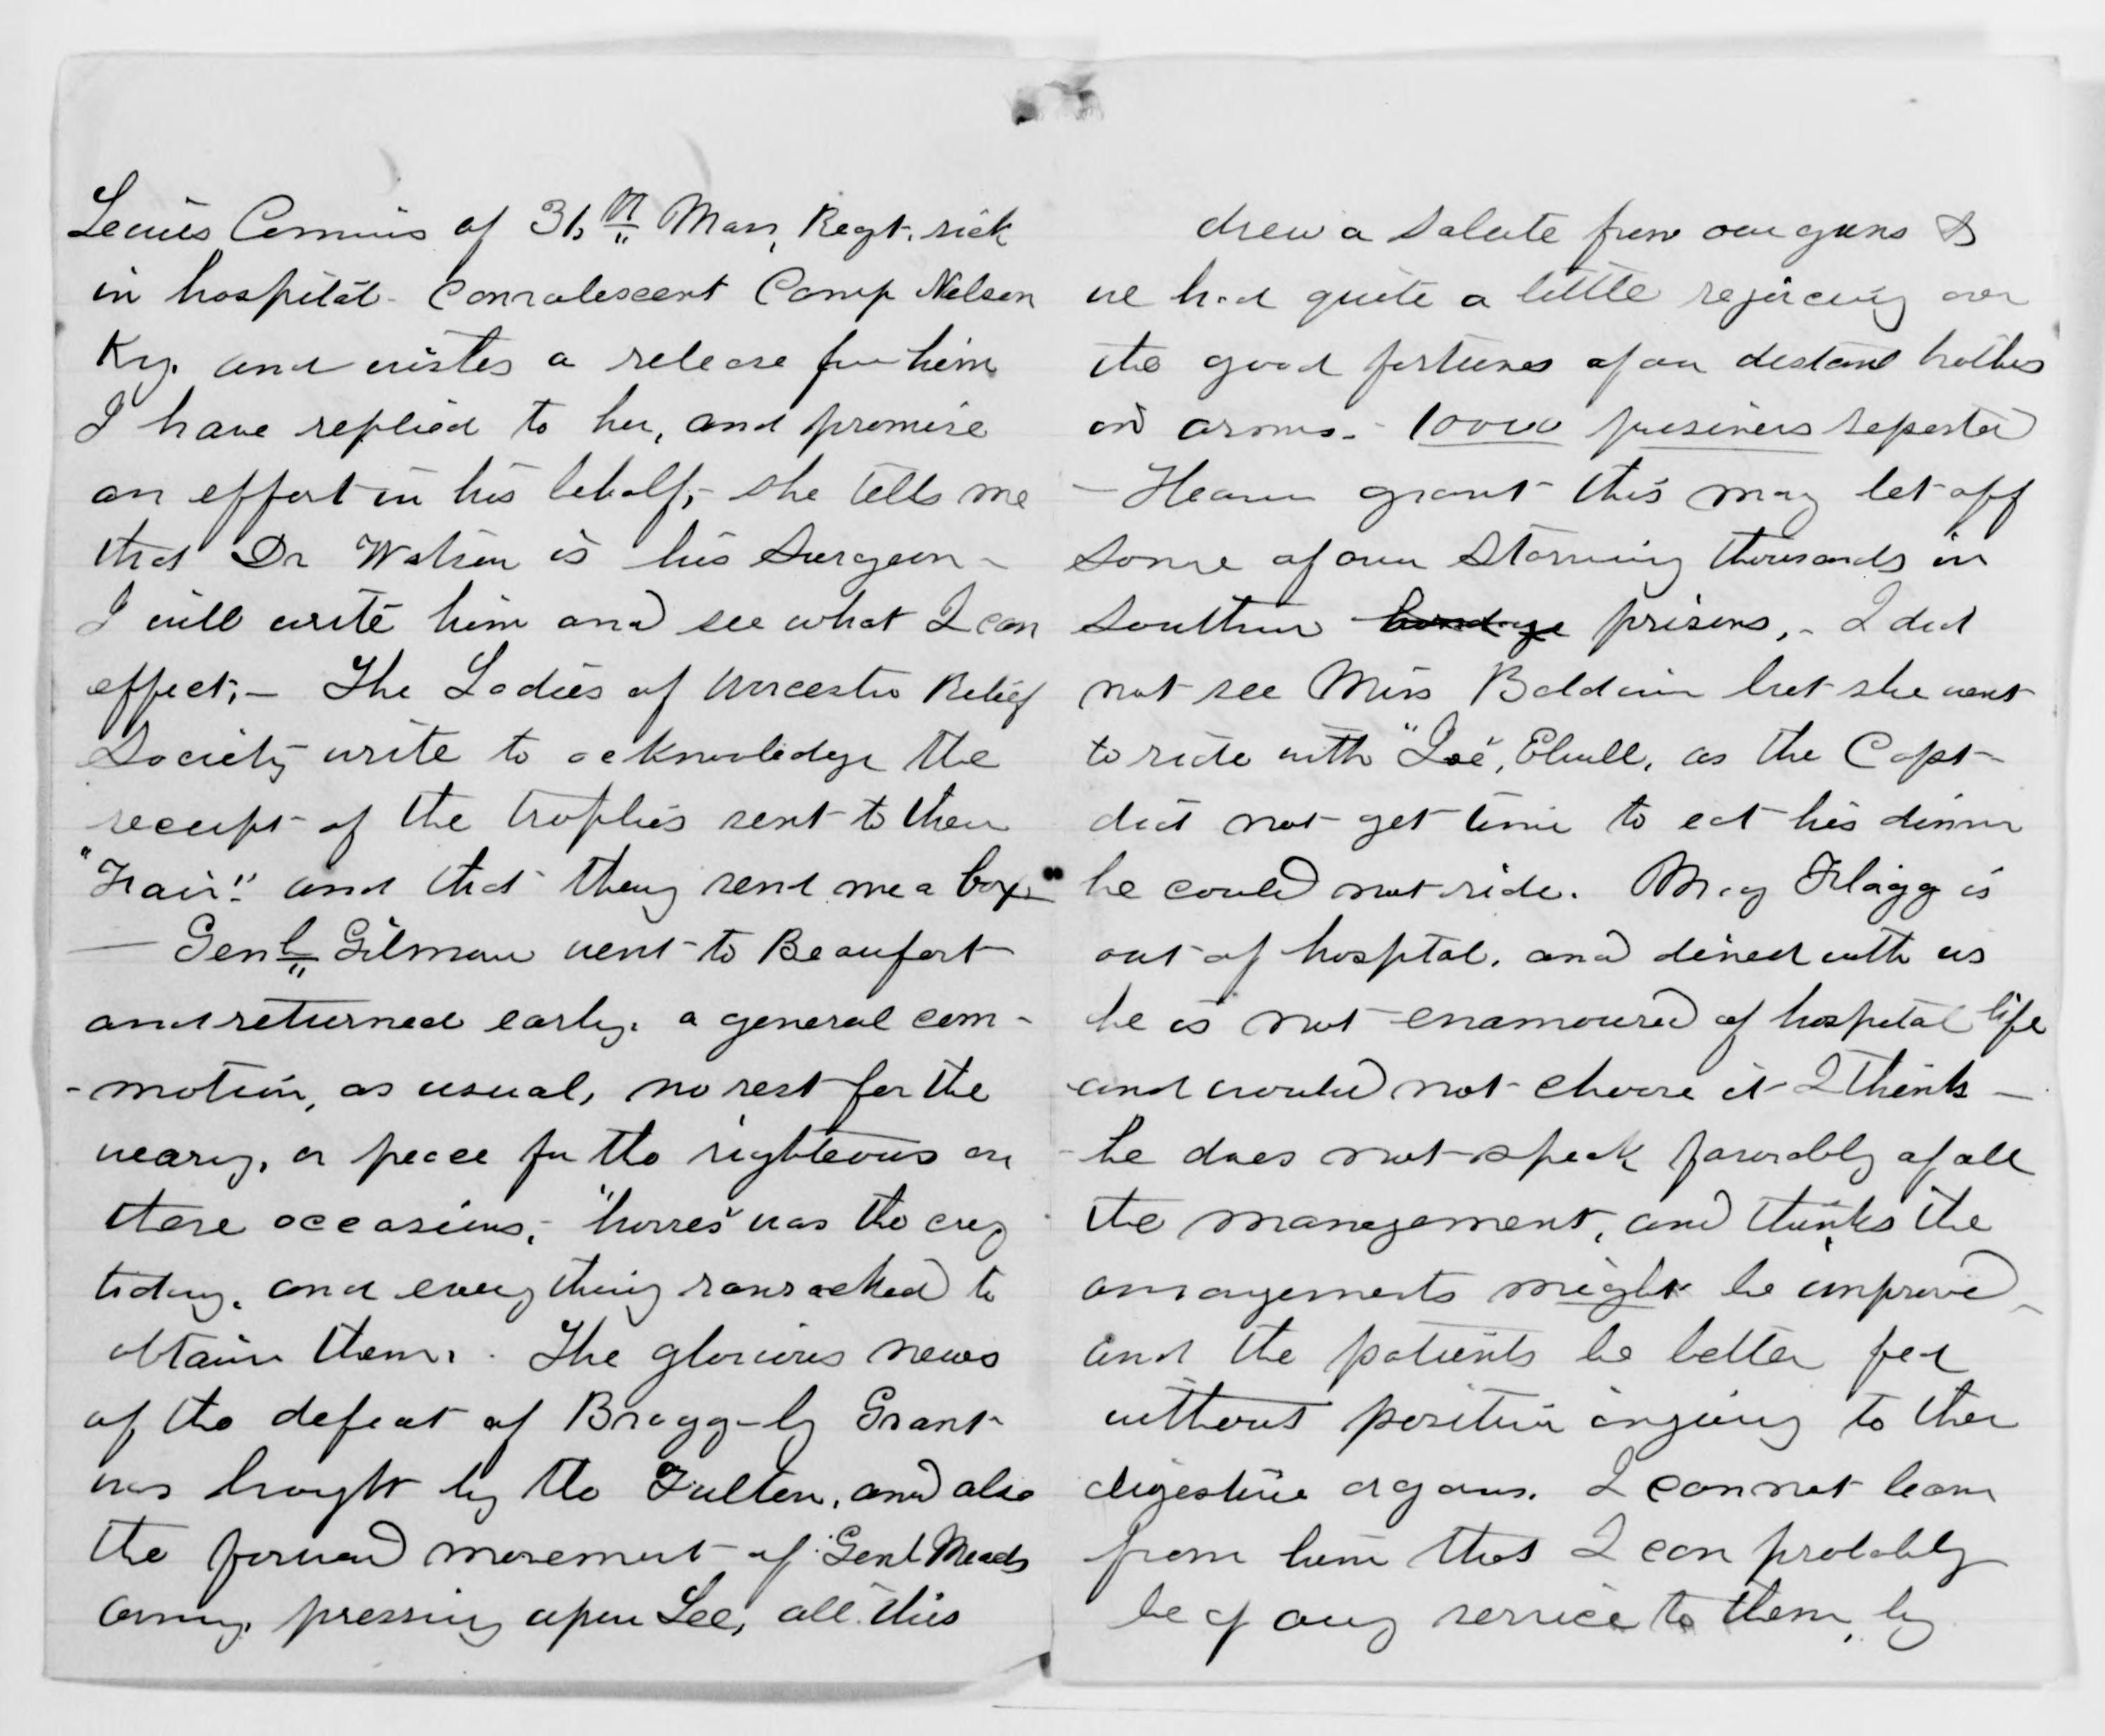 Lewis Commins of 31,st Mass, Regt. sick
in hospital - Convalescent Camp Nelson
Ky. and wishes a release for him
I have replied to her, and promise
an effort in his behalf, - she tells me
that Dr Watson is his Surgeon -
I will write him and see what I can
effect; - The Ladies of Worcester Relief
Society write to acknowledge the
receipt of the trophies sent to their
"Fair", and that they send me a box -
- Genl Gilmore went to Beaufort
and returned early, a general com -
- motion, as usual, no rest for the
weary, or peace for the righteous on
these occasions, - "horses" was the cry
today, and every thing ransacked to
obtain them. The glorious news
of the defeat of Bragg - by Grant -
was brought by the Fulton, and also
the forward movement of Genl Meads
army, pressing upon Lee, all this
drew a salute from our guns &
we had quite a little rejoicing over
the good fortunes of our distant brothers
in arms. - 10000 prisoners reported
- Heaven grant this may let off
some of our starving thousands in
southern bondage prisons, - I did
not see Miss Baldwin but she went
to ride with "Joe", Elwell, as the Capt -
did not get time to eat his dinner
he could not ride. Maj Flagg is
out of hospital, and dined with us
he is not enamoured of hospital life
and would not choose it I think -
- he does not speak favorably of all
the management, and thinks the
arrangements might be improved -
and the patients be better fed
without positive injury to their
digestive organs. I cannot learn
from him that I can probably
be of any service to them, by